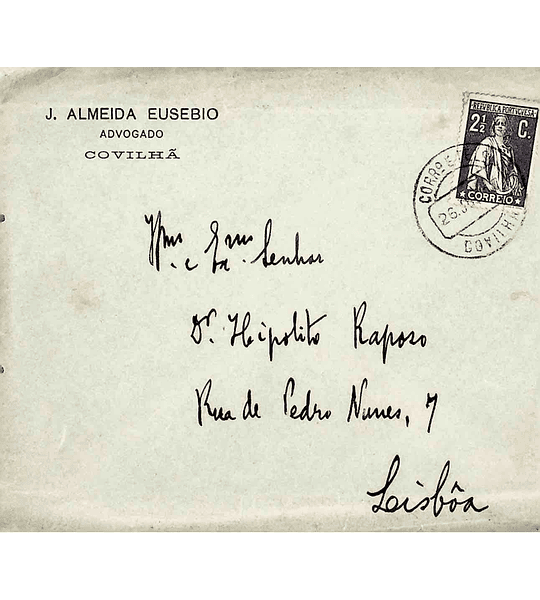 J. ALMEIDA EUSEBIO
ADVOGADO
COVILHÃ
REPUBLICA PORTUGUESA
2½ C.
CORREIO
CORRº E
26.
COVILHÃ
Illmo e Exmo Senhor
Dr. Hipolito Raposo
Rua de Pedro Nunes, 7
Lisbôa